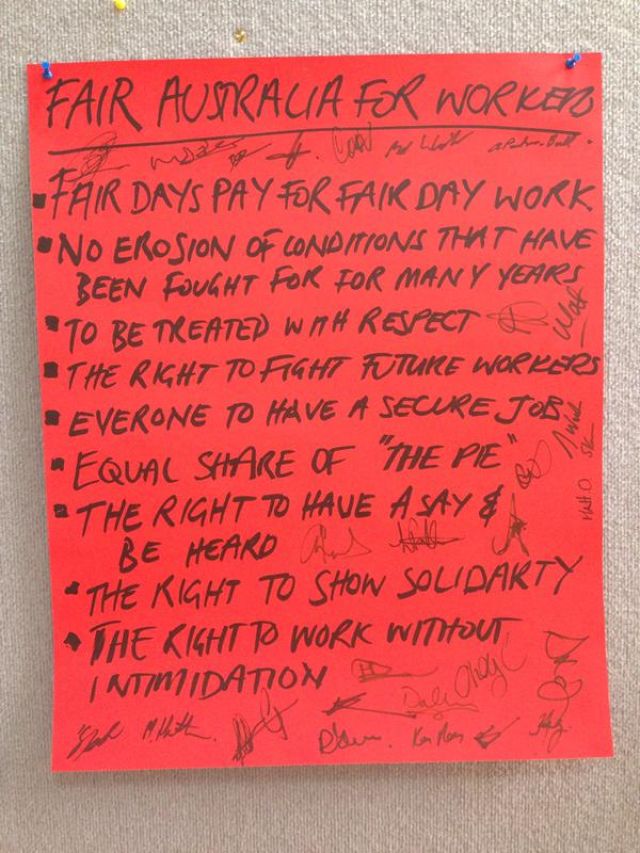 FAIR AUSTRALIA FOR WORKERS
▪ FAIR DAYS PAY FOR FAIR DAY WORK
▪ NO EROSION OF CONDITIONS THAT HAVE
BEEN FOUGHT FOR FOR MANY YEARS
▪ TO BE TREATED WITH RESPECT
▪ THE RIGHT TO FIGHT FUTURE WORKERS
▪ EVERONE TO HAVE A SECURE JOB
▪ EQUAL SHARE OF "THE PIE"
▪ THE RIGHT TO HAVE A SAY &
BE HEARD
▪ THE RIGHT TO SHOW SOLIDARTY
▪ THE RIGHT TO WORK WITHOUT
INTIMIDATION
Matt O